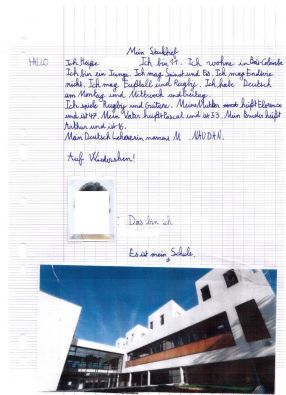 Mein Steckbrief
HALLO
Ich Ich bin 11. Ich wohne in
Ich bin ein Junge. Ich mag Spinat und Eis. Ich mag Endivie
nicht. Ich mag Fußball und Rugby. Ich habe Deutsch
am Montag und Mittwoch und Freitag.
Ich spiele Rugby und Guitare. Meine Mutter heißt Florence
und ist 47. Mein Vater heißt Pascal und ist 53. Mein Bruder heißt
Arthur und ist 16.
Mein Deutsch Lehrerin M NAUDAN.
Auf Wiedersehen!
Das bin ich
Es ist mein Schule.